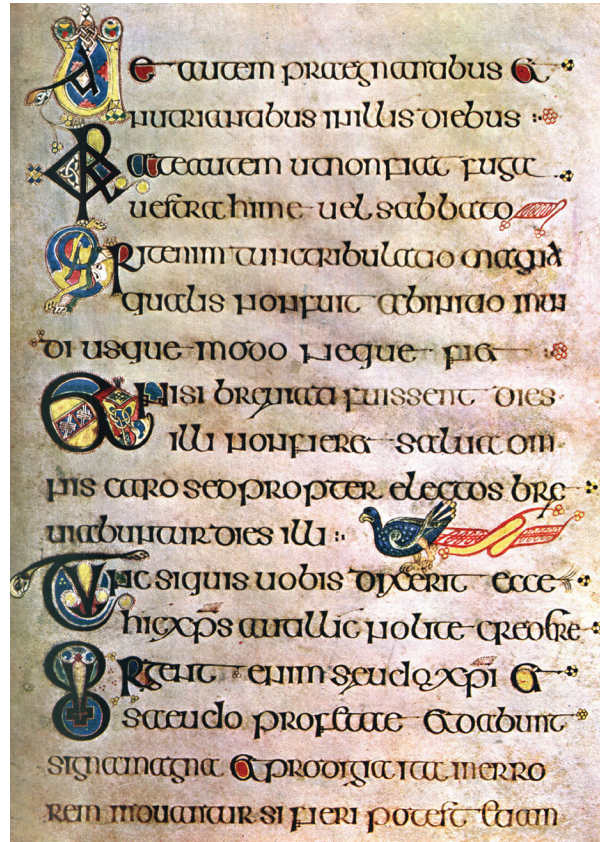 Uae autem praegnantibus &
nutriantibus inillis diebus :
Orate autem utnonfiat fuga
uestra hime uel sabbato
Erit enim tunc tribulatio magna
qualis nonfuit abinitio mun
di usque modo neque fi&
Etnisi breuiati fuissent dies
illi nonfier& salua om
nis caro sed propter electos bre
uiabuntur dies illi :
Tunc siquis uobis dixerit ecce
hicxps autillic nolite credere
Surgent enim seudoxpi &
saeudo profetae & dabunt
signa magna & prodigia ita inerro
rem inducantur si fieri potest etiam